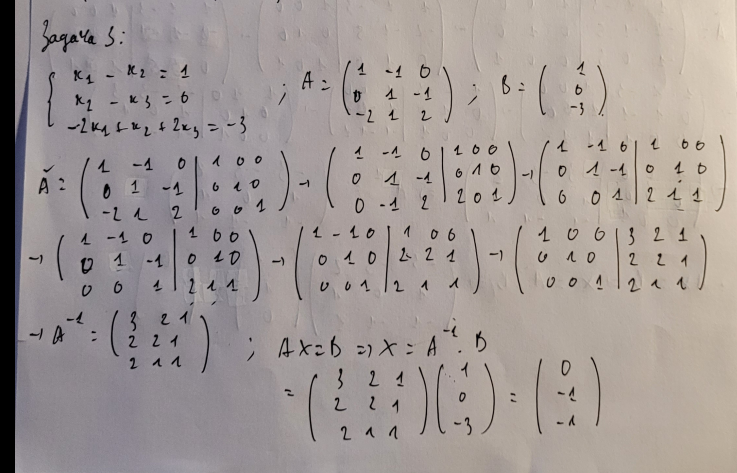 Задача 3:
{ x₁ - x₂ = 1 ; x₂ - x₃ = 0 ; -2x₁ + x₂ + 2x₃ = -3 ; A = (1 -1 0 / 0 1 -1 / -2 1 2) ; B = (1 / 0 / -3)
Ã = (1 -1 0 | 1 0 0 / 0 1 -1 | 0 1 0 / -2 1 2 | 0 0 1) → (1 -1 0 | 1 0 0 / 0 1 -1 | 0 1 0 / 0 -1 2 | 2 0 1) → (1 -1 0 | 1 0 0 / 0 1 -1 | 0 1 0 / 0 0 1 | 2 1 1)
→ (1 -1 0 | 1 0 0 / 0 1 -1 | 0 1 0 / 0 0 1 | 2 1 1) → (1 -1 0 | 1 0 0 / 0 1 0 | 2 2 1 / 0 0 1 | 2 1 1) → (1 0 0 | 3 2 1 / 0 1 0 | 2 2 1 / 0 0 1 | 2 1 1)
→ A⁻¹ = (3 2 1 / 2 2 1 / 2 1 1) ; AX = B ⇒ X = A⁻¹ . B
= (3 2 1 / 2 2 1 / 2 1 1) (1 / 0 / -3) = (0 / -1 / -1)